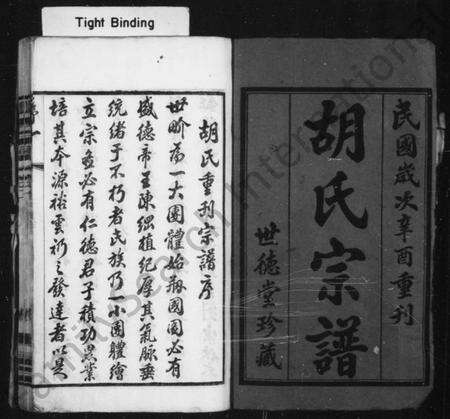 Tight Binding
民國歲次辛酉重刊
胡氏宗譜
世德堂珍藏
胡氏重刊宗譜序
世界為一大團體始雖國國必有
盛德帝王陳綱植紀厚其氣脈垂
統緒于不朽者氏族乃一小團體繪
立宗彝必有仁德君子積功累業
培其本源裕雲礽之發達者以是
FamilySearch International